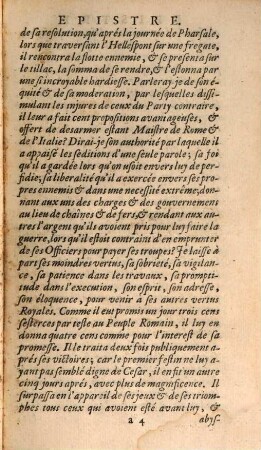 EPISTRE.
de sa resolution, qu'aprés la journée de Pharsale,
lors que traversant l'Hellespont sur une fregate,
il rencontra la flotte ennemie, & se presenta sur
le tillac, la somma de se rendre, & l'estonna par
une si incroyable hardiesse. Parleray-je de son é-
quité & de sa moderation, par lesquelles dissi-
mulant les injures de ceux du Party contraire,
il leur a fait cent propositions avantageuses, &
offert de desarmer estant Maistre de Rome &
de l'Italie? Dirai-je son authorité par laquelle il
a appaisé les seditions d'une seule parole; sa foi
qu'il a gardée lors qu'on usoit envers luy de per-
fidie; sa liberalité qu'il a exercée envers ses pro-
pres ennemis & dans une necessité extrême; don-
nant aux uns des charges & des gouvernemens
au lieu de chaînes & de fers, & rendant aux au-
tres l'argent qu'ils avoient pris pour luy faire la
guerre, lors qu'il estoit contraint d'en emprunter
de ses Officiers pour payer ses troupes? Je laisse à
part ses moindres vertus, sa sobrieté, sa vigilan-
ce, sa patience dans les travaux, sa prompti-
tude dans l'execution, son esprit, son adresse,
son éloquence, pour venir à ses autres vertus
Royales. Comme il eut promis un jour trois cens
sesterces par teste au Peuple Romain, il luy en
donna quatre cens comme pour l'interest de sa
promesse. Il le traita deux fois publiquement a-
prés ses victoires; car le premier festin ne luy a-
yant pas semblé digne de Cesar, il en fit un autre
cinq jours aprés, avec plus de magnificence. Il
surpassa en l'appareil de ses jeux & de ses triom-
phes tous ceux qui avoient esté avant luy, &
a 4 abys-